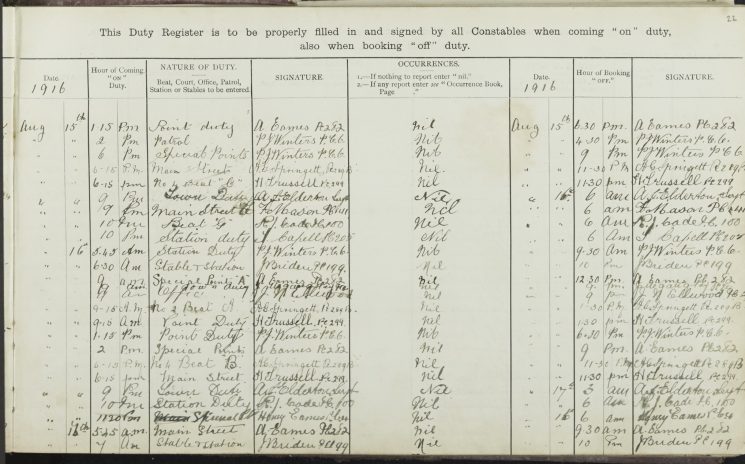 22
This Duty Register is to be properly filled in and signed by all Constables when coming "on" duty,
also when booking "off" duty.
Date. 1916 Hour of Coming "on" Duty. NATURE OF DUTY. Beat, Court, Office, Patrol, Station or Stables to be entered. SIGNATURE. OCCURRENCES. 1.—If nothing to report enter "nil." 2.—If any report enter see "Occurrence Book, Page ." Date. 1916 Hour of Booking "off." SIGNATURE.
Aug 15th 1.15 Pm Point duty A Eames Pc 282 Nil Aug 15th 6.30 Pm. A Eames Pc 282
" " 2 Pm Patrol P J Winters P.C. 6. Nil " " 4.30 Pm P J Winters P.C. 6.
" " 6 Pm Special Points P J Winters P.C. 6. Nil " " 9 Pm P J Winters P.C. 6.
" " 6-15 P.M. Main Street H C Springett Pc 289 B Nil " " 11-30 P.M. H C Springett Pc 289 B
" " 6-15 pm No 4 Beat G H Trussell Pc 299 Nil " " 11.30 pm H Trussell Pc 299
" " 9 Pm Town Duty A J Elderton Sergt Nil " 16th 6 am A J Elderton Sergt
" " 9 pm Main Street F Mason Pc Nil " " 6 am F Mason Pc
" " 10 Pm Beat G R J Cade Pc 100 Nil " " 6 Am R J Cade Pc 100
" " 10 Pm Station duty J Capell Pc 205 Nil " " 6 Am J Capell Pc 205
" 16 5.45 Am Station Duty P J Winters P.C. 6. Nil " " 9.30 Am P J Winters P.C. 6.
" " 6.30 Am Stable & Station J Briden PC 199 Nil " " 10 Pm J Briden PC 199
" " 9 am Special Points A A Eames Pc 282 Nil " " 12.30 Pm. A Eames Pc 282
" " 9 am Nil " " 9 pm
" " 9-15 A.M. No 2 Beat A H C Springett Pc 289 B Nil " " 1-30 P.M. H C Springett Pc 289 B
" " 9.15 Am Point Duty H Trussell Pc 299 Nil " " 1.30 pm H Trussell Pc 299
" " 1.15 Pm Point Duty P J Winters P.C. 6. Nil " " 6.30 Pm P J Winters P.C. 6.
" " 2 Pm. Special Points A Eames Pc 282 Nil " " 9 Pm. A Eames Pc 282
" " 6-15 P.M. No 4 Beat B. H C Springett Pc 289 B Nil " " 11-30 P.M. H C Springett Pc 289 B
" " 6.15 pm Main Street H Trussell Pc 299 Nil " " 11.30 pm H Trussell Pc 299
" " 9 Pm Town Duty A J Elderton Sergt Nil " 17th 3 am A J Elderton Sergt
" " 10 Pm Station Duty R J Cade Pc 100 Nil " " 6 Am R J Cade Pc 100
" " 11.30 Pm Special Henry Eames Nil " 16 6 am Henry Eames
" 17th 5.45 a.m. Main Street A Eames Pc 282 Nil " " 9.30 am A Eames Pc 282
" " 7 am Stable & Station J Briden PC 199 Nil " " 10 Pm J Briden PC 199